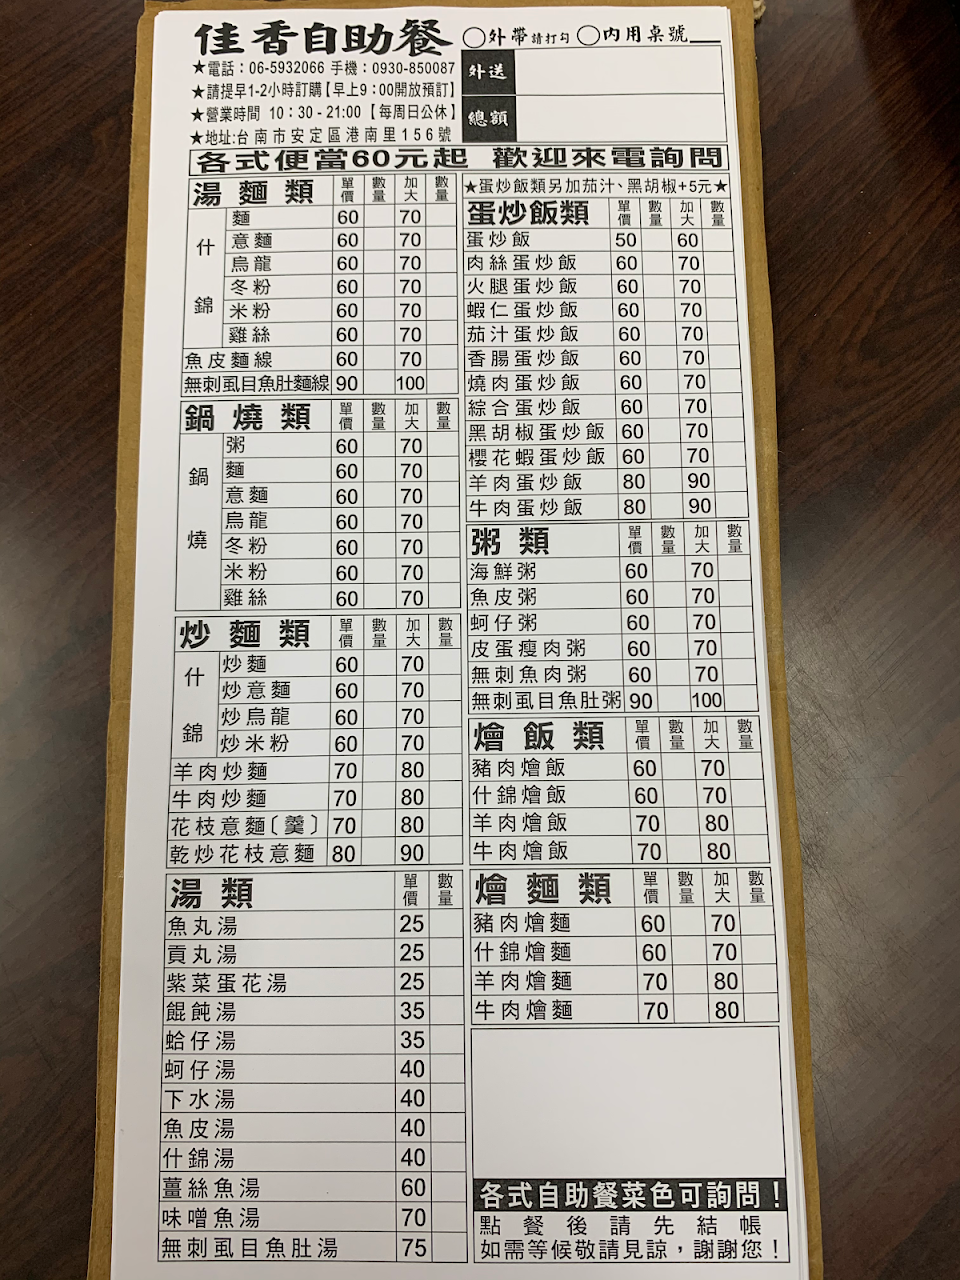 佳香自助餐 ○外帶請打勾 ○內用桌號
★電話：06-5932066 手機：0930-850087
★請提早1-2小時訂購【早上9：00開放預訂】
★營業時間 10：30-21:00【每周日公休】
★地址:台南市安定區港南里156號
外送
總額
各式便當60元起 歡迎來電詢問
湯麵類 單價 數量 加大 數量
什錦
麵 60 70
意麵 60 70
烏龍 60 70
冬粉 60 70
米粉 60 70
雞絲 60 70
魚皮麵線 60 70
無刺虱目魚肚麵線 90 100
鍋燒類 單價 數量 加大 數量
鍋燒
粥 60 70
麵 60 70
意麵 60 70
烏龍 60 70
冬粉 60 70
米粉 60 70
雞絲 60 70
炒麵類 單價 數量 加大 數量
什錦
炒麵 60 70
炒意麵 60 70
炒烏龍 60 70
炒米粉 60 70
羊肉炒麵 70 80
牛肉炒麵 70 80
花枝意麵〔羹〕 70 80
乾炒花枝意麵 80 90
湯類 單價 數量
魚丸湯 25
貢丸湯 25
紫菜蛋花湯 25
餛飩湯 35
蛤仔湯 35
蚵仔湯 40
下水湯 40
魚皮湯 40
什錦湯 40
薑絲魚湯 60
味噌魚湯 70
無刺虱目魚肚湯 75
★蛋炒飯類另加茄汁、黑胡椒+5元★
蛋炒飯類 單價 數量 加大 數量
蛋炒飯 50 60
肉絲蛋炒飯 60 70
火腿蛋炒飯 60 70
蝦仁蛋炒飯 60 70
茄汁蛋炒飯 60 70
香腸蛋炒飯 60 70
燒肉蛋炒飯 60 70
綜合蛋炒飯 60 70
黑胡椒蛋炒飯 60 70
櫻花蝦蛋炒飯 60 70
羊肉蛋炒飯 80 90
牛肉蛋炒飯 80 90
粥類 單價 數量 加大 數量
海鮮粥 60 70
魚皮粥 60 70
蚵仔粥 60 70
皮蛋瘦肉粥 60 70
無刺魚肉粥 60 70
無刺虱目魚肚粥 90 100
燴飯類 單價 數量 加大 數量
豬肉燴飯 60 70
什錦燴飯 60 70
羊肉燴飯 70 80
牛肉燴飯 70 80
燴麵類 單價 數量 加大 數量
豬肉燴麵 60 70
什錦燴麵 60 70
羊肉燴麵 70 80
牛肉燴麵 70 80
各式自助餐菜色可詢問！
點餐後請先結帳
如需等候敬請見諒，謝謝您！